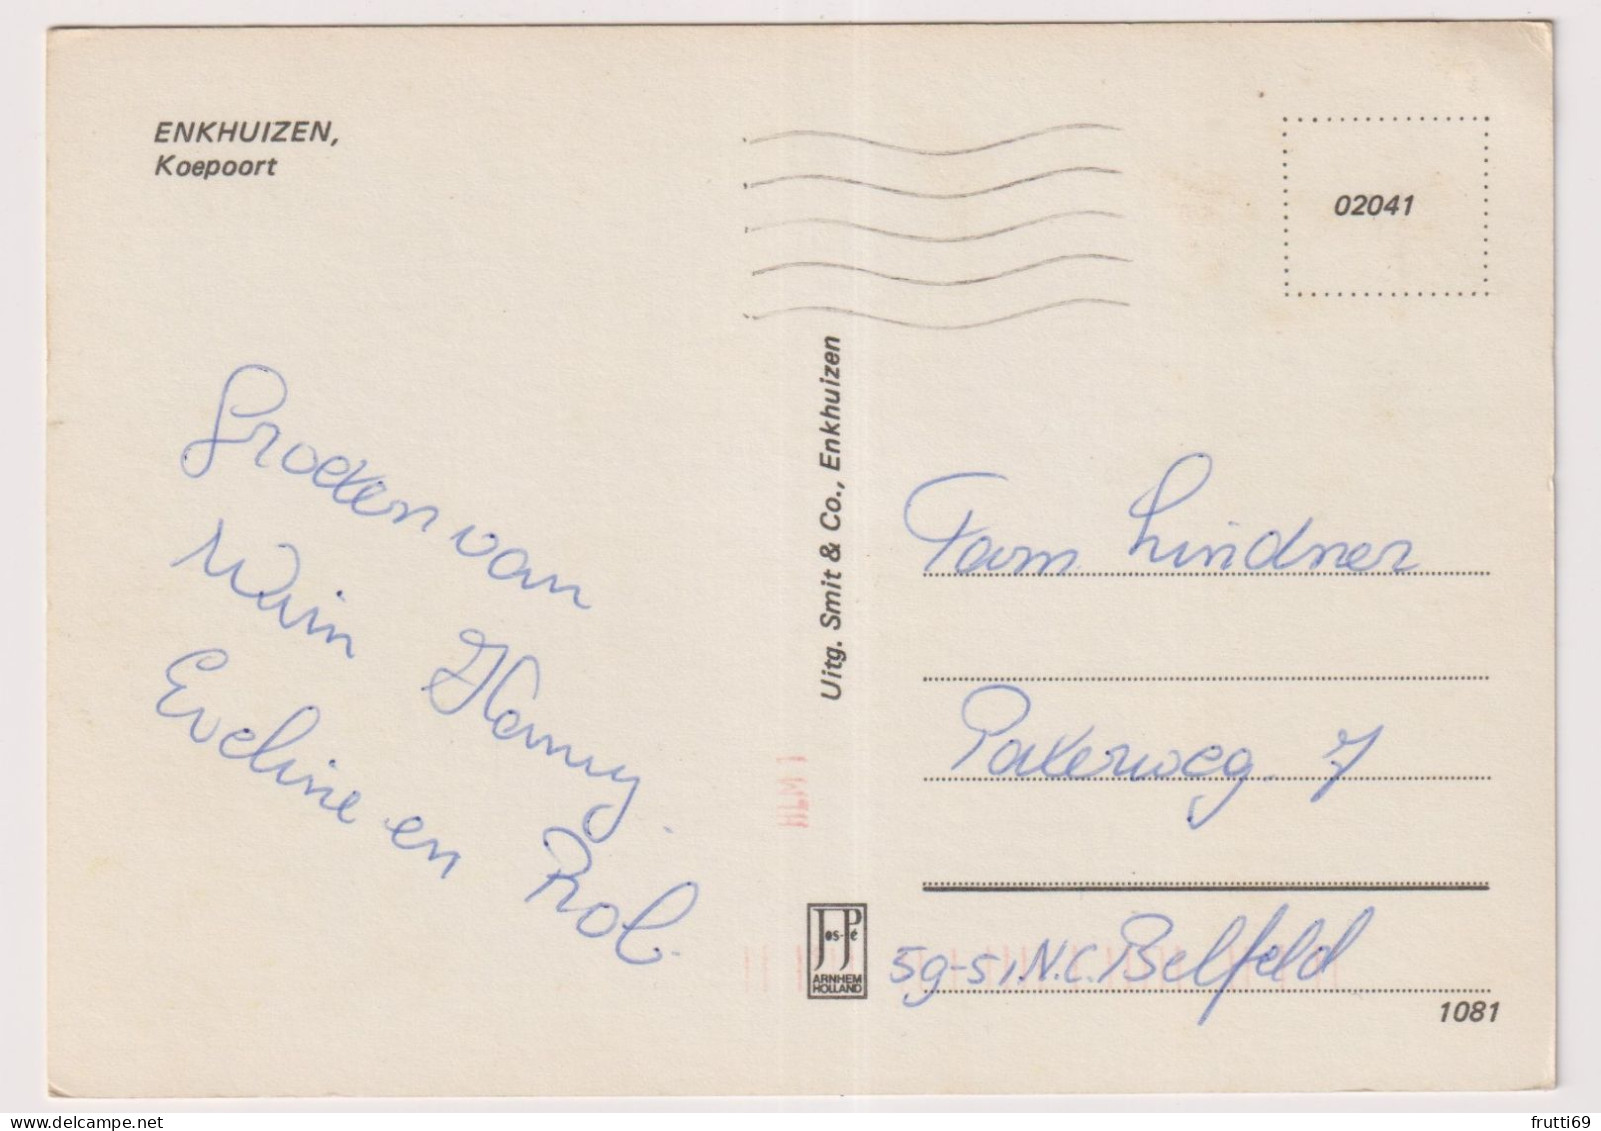 ENKHUIZEN,
Koepoort
02041
Groeten van
Wain Hanny
Eveline en Rob.
Uitg. Smit & Co., Enkhuizen
Fam Lindner
Paterweg. 7
59-51.N.C. Belfeld
Jos-Pé
ARNHEM
HOLLAND
1081
frutti69